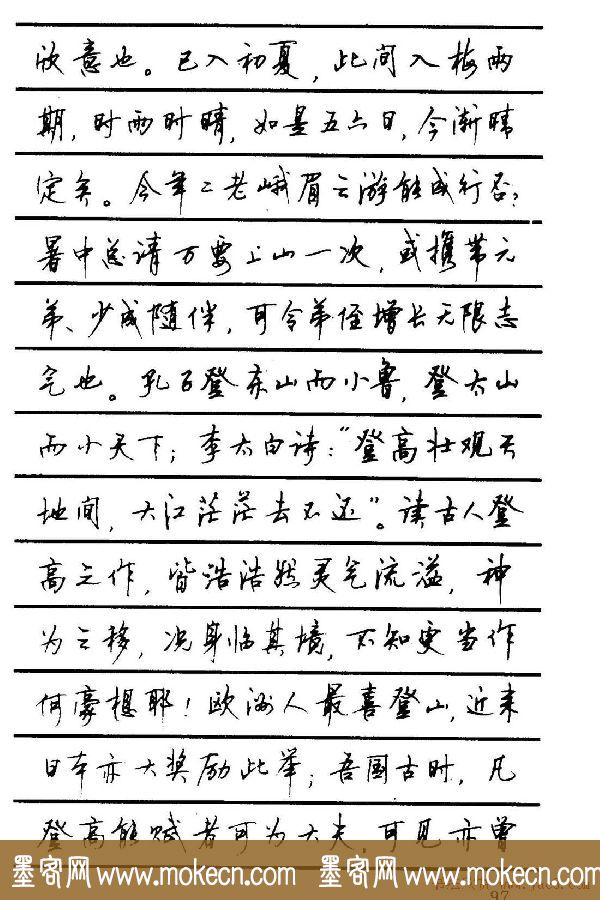 欣意也。已入初夏，此间入梅雨
期，时雨时晴，如是五六日，今渐晴
定矣。今年二老峨眉云游能成行否？
暑中总请万要上山一次，或携带元
弟、少成随伴，可令弟侄增长无限志
气也。孔子登东山而小鲁，登太山
而小天下；李太白诗：“登高壮观天
地间，大江茫茫去不还”。读古人登
高之作，皆浩浩然灵气流溢，神
为之移，况身临其境，不知更当作
何豪想耶！欧洲人最喜登山，近来
日本亦大奖励此举；吾国古时，凡
登高能赋者可为大夫，可见亦曾
墨客网 www.mokecn.com 墨客网 www.mokecn.com
97